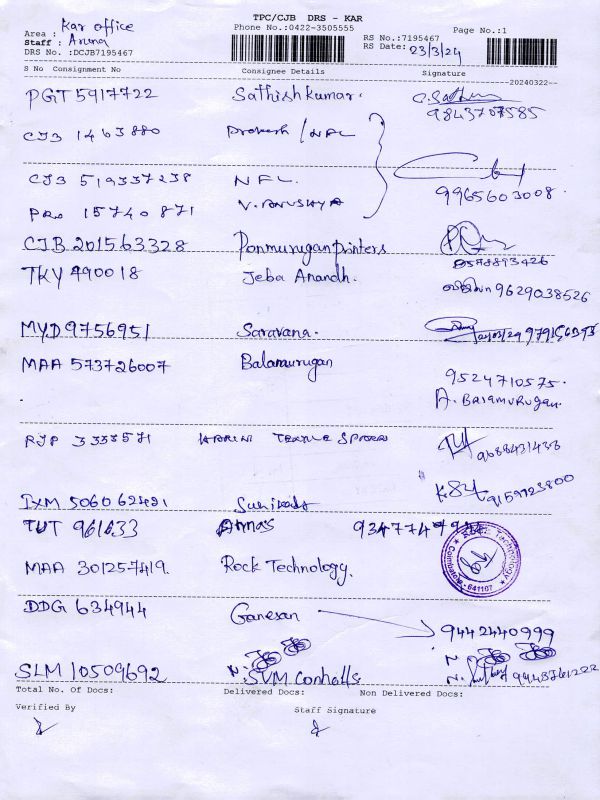 TPC/CJB DRS - KAR
Phone No.:0422-3505555
Page No.:1
Area : Kar office
Staff : Aruna
DRS No. :DCJB7195467
RS No.:7195467
RS Date: 23/3/24
S No Consignment No Consignee Details Signature
20240322
PGT 5917722 Sathishkumar.
9843707585
CJB 1463880 Prakash / NFL
CJB 519337238 NFL.
9965603008.
PRO 15740871 V. ANUSHYA
CJB 201563328 Ponmuruganprinters
8573893426
TKY 490018 Jeba Anandh. 9629038526
MYD 9756951 Saravana.
MAA 573726007 Balamurugan
9524710575.
A. Balamurugan.
RJP 3333571 HARINI
9688431433
IXM 506062421
9159123800
TUT 961633 Annas
Technology
Coimbatore - 641107
MAA 301257419. Rock Technology.
DDG 634944 Ganesan 9442440999
SLM 10509692 SVM
Total No. Of Docs: Delivered Docs: Non Delivered Docs:
Verified By Staff Signature